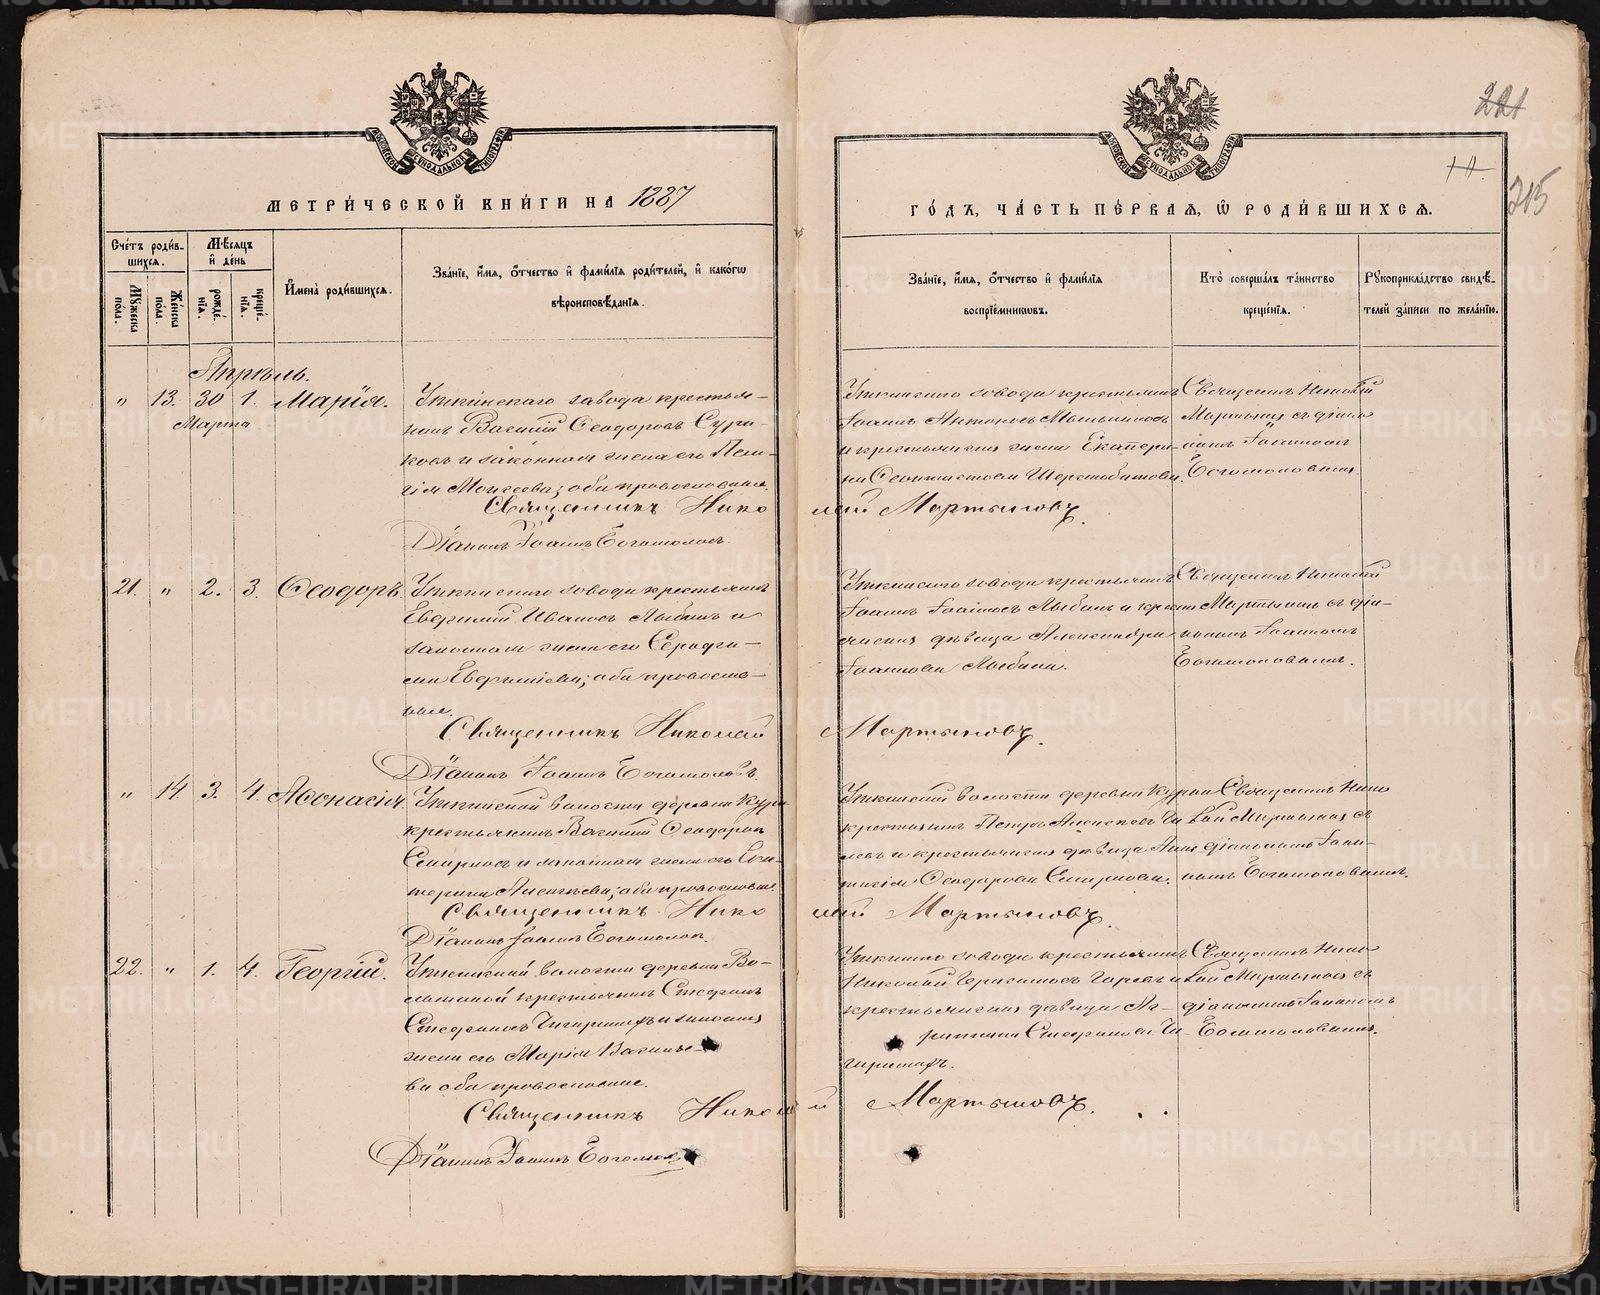 221
11.
215
МЕТРИ́ЧЕСКОЙ КНИ́ГИ НА 1887
ГО́ДЪ, ЧА́СТЬ ПЕ́РВАЯ, Ѿ РОДИ́ВШИХСЯ.
Сче́тъ роди́в-
шихся.
Мꙋ́жеска по́ла.
Же́нска по́ла.
Мѣ́сяцъ и҆ де́нь
рожде́-нїѧ.
креще́-нїѧ.
И҆мена̀ роди́вшихся.
Зва́нїе, и҆́мя, ѻ҆́тчество и҆ фами́лїя роди́телей, и҆ како́гѡ
вѣроисповѣ́данїя.
Зва́нїе, и҆́мя, ѻ҆́тчество и҆ фами́лїя
воспрїе́мникѡвъ.
Кто̀ соверша́лъ та́инство
креще́нїя.
Рꙋкоприкла́дство свидѣ́-
телей за́писи по жела́нїю.
Апрѣль.
" 13. 30 1. Марія.
Марта
Уткинскаго завода крестья-
нинъ Василій Ѳеодоровъ Сури-
ковъ и законная жена его Пела-
гія Моисеева; оба православные.
Уткинскаго завода крестьянинъ
Іоаннъ Антоновъ Мельниковъ
и крестьянская жена Екатери-
на Шерстобитова.
Священникъ Николай
Мартыновъ съ діако-
номъ Іоанномъ
Богомоловымъ
Священникъ Николай Мартыновъ.
Діаконъ Іоаннъ Богомоловъ.
21. " 2. 3. Ѳеодоръ.
Уткинскаго завода крестьянинъ
Евгеній Ивановъ и
законная жена его Серафи-
ма Евгеніева; оба православ-
ные.
Уткинскаго завода крестьянинъ
Іоаннъ Іоанновъ и кресть
янская дѣвица Александра
Іоаннова
Священникъ Николай
Мартыновъ съ діа-
кономъ Іоанномъ
Богомоловымъ.
Священникъ Николай Мартыновъ.
Діаконъ Іоаннъ Богомоловъ.
" 14. 3. 4. Аѳонасія.
Уткинской волости деревни Курьи
крестьянинъ Василій Ѳеодоровъ
Смирновъ и законная жена его Ека-
терина Алексѣева; оба православные.
Уткинской волости деревни Курьи
крестьянинъ Петръ Алексѣевъ
и крестьянская дѣвица
Ѳеодорова Смирнова.
Священникъ Нико
лай Мартыновъ съ
діакономъ Іоан-
номъ Богомоловымъ.
Священникъ Николай Мартыновъ.
Діаконъ Іоаннъ Богомоловъ.
22. " 1. 4. Георгій.
Уткинской волости деревни
крестьянинъ Стефанъ
Стефановъ и законная
жена его Марія Василье-
ва оба православные.
Уткинскаго завода крестьянинъ
Николай
крестьянская дѣвица
Стефанова
Священникъ Нико
лай Мартыновъ съ
діакономъ Іоанномъ
Богомоловымъ.
Священникъ Николай Мартыновъ.
Діаконъ Іоаннъ Богомоловъ
METRIKI.GASO-URAL.RU